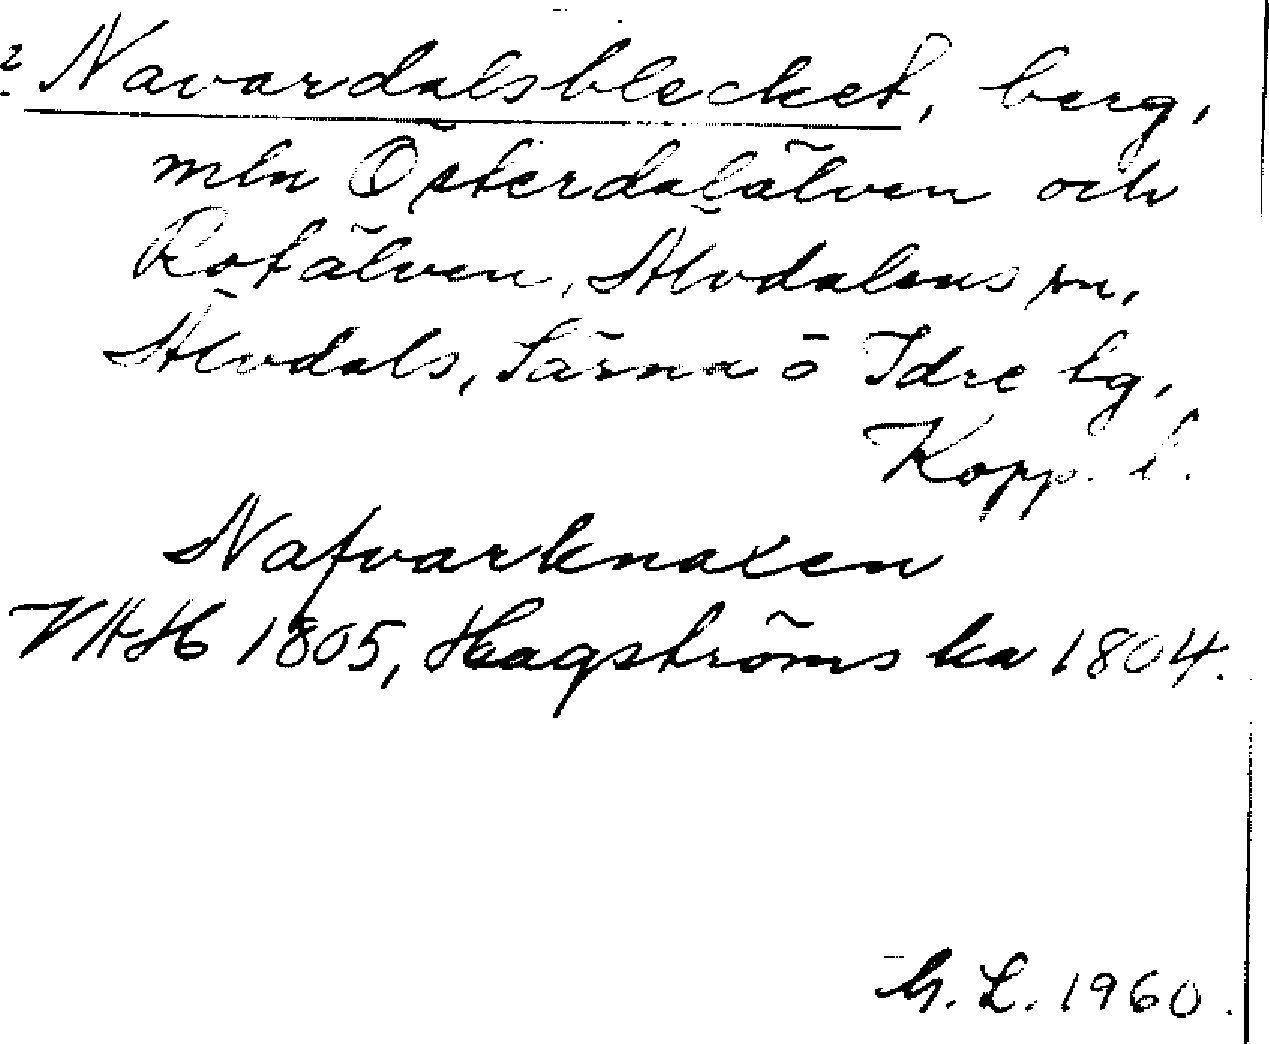 2 Navardalsblecket, berg,
mln Österdalälven och
Rotälven, Älvdalens sn,
Älvdals, Särna o Idre tg,
Kopp. l.
Nafvarknaxen
VAH 1805, Hagströms ka 1804.
G. L. 1960.